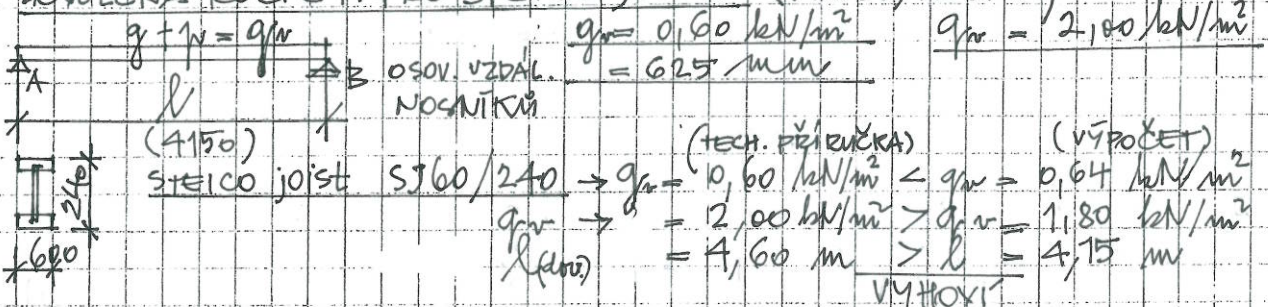 g + p = qn
gn = 0,60 kN/m²
qn = 2,00 kN/m²
A
B
OSOV. VZDÁL. = 625 mm
NOSNÍKŮ
l
(4150)
(TECH. PŘÍRUČKA)
(VÝPOČET)
STEICO joist SJ60/240 → gn = 0,60 kN/m² < gn = 0,64 kN/m²
240
qn → = 2,00 kN/m² > qn = 1,80 kN/m²
l(dov.) = 4,60 m > l = 4,15 m
VYHOVÍ